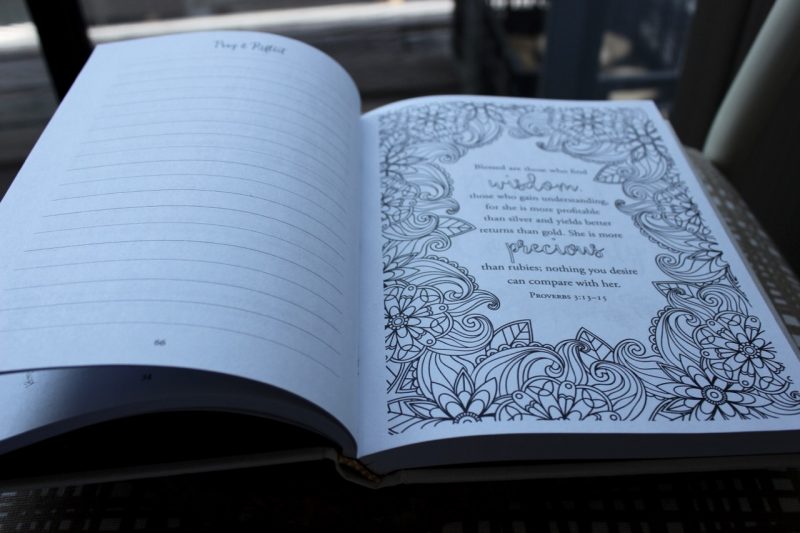 Pray & Reflect
66
34
Blessed are those who find
wisdom,
those who gain understanding,
for she is more profitable
than silver and yields better
returns than gold. She is more
precious
than rubies; nothing you desire
can compare with her.
Proverbs 3:13–15